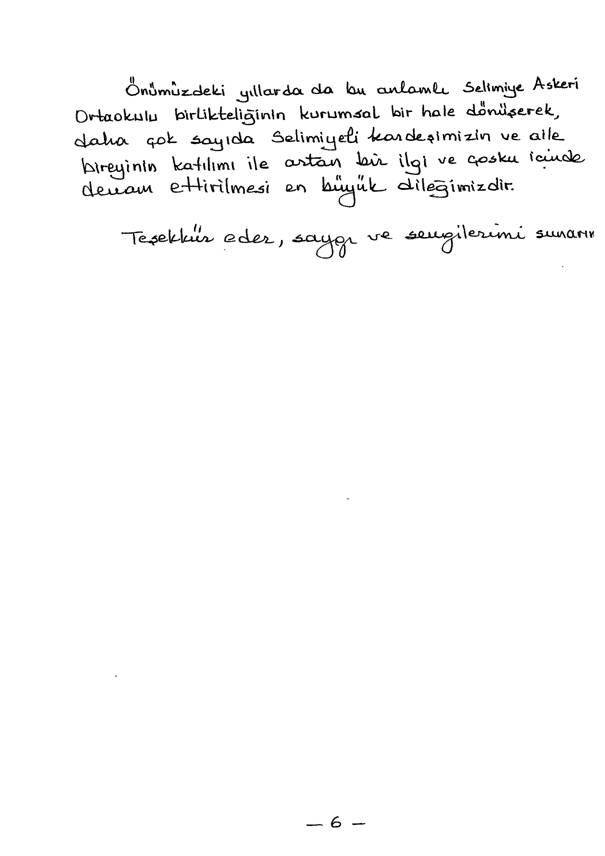 Önümüzdeki yıllarda da bu anlamlı Selimiye Askeri
Ortaokulu birlikteliğinin kurumsal bir hale dönüşerek,
daha çok sayıda Selimiyeli kardeşimizin ve aile
bireyinin katılımı ile artan bir ilgi ve çoşku içinde
devam ettirilmesi en büyük dileğimizdir.
Teşekkür eder, saygı ve sevgilerimi sunarım
— 6 —